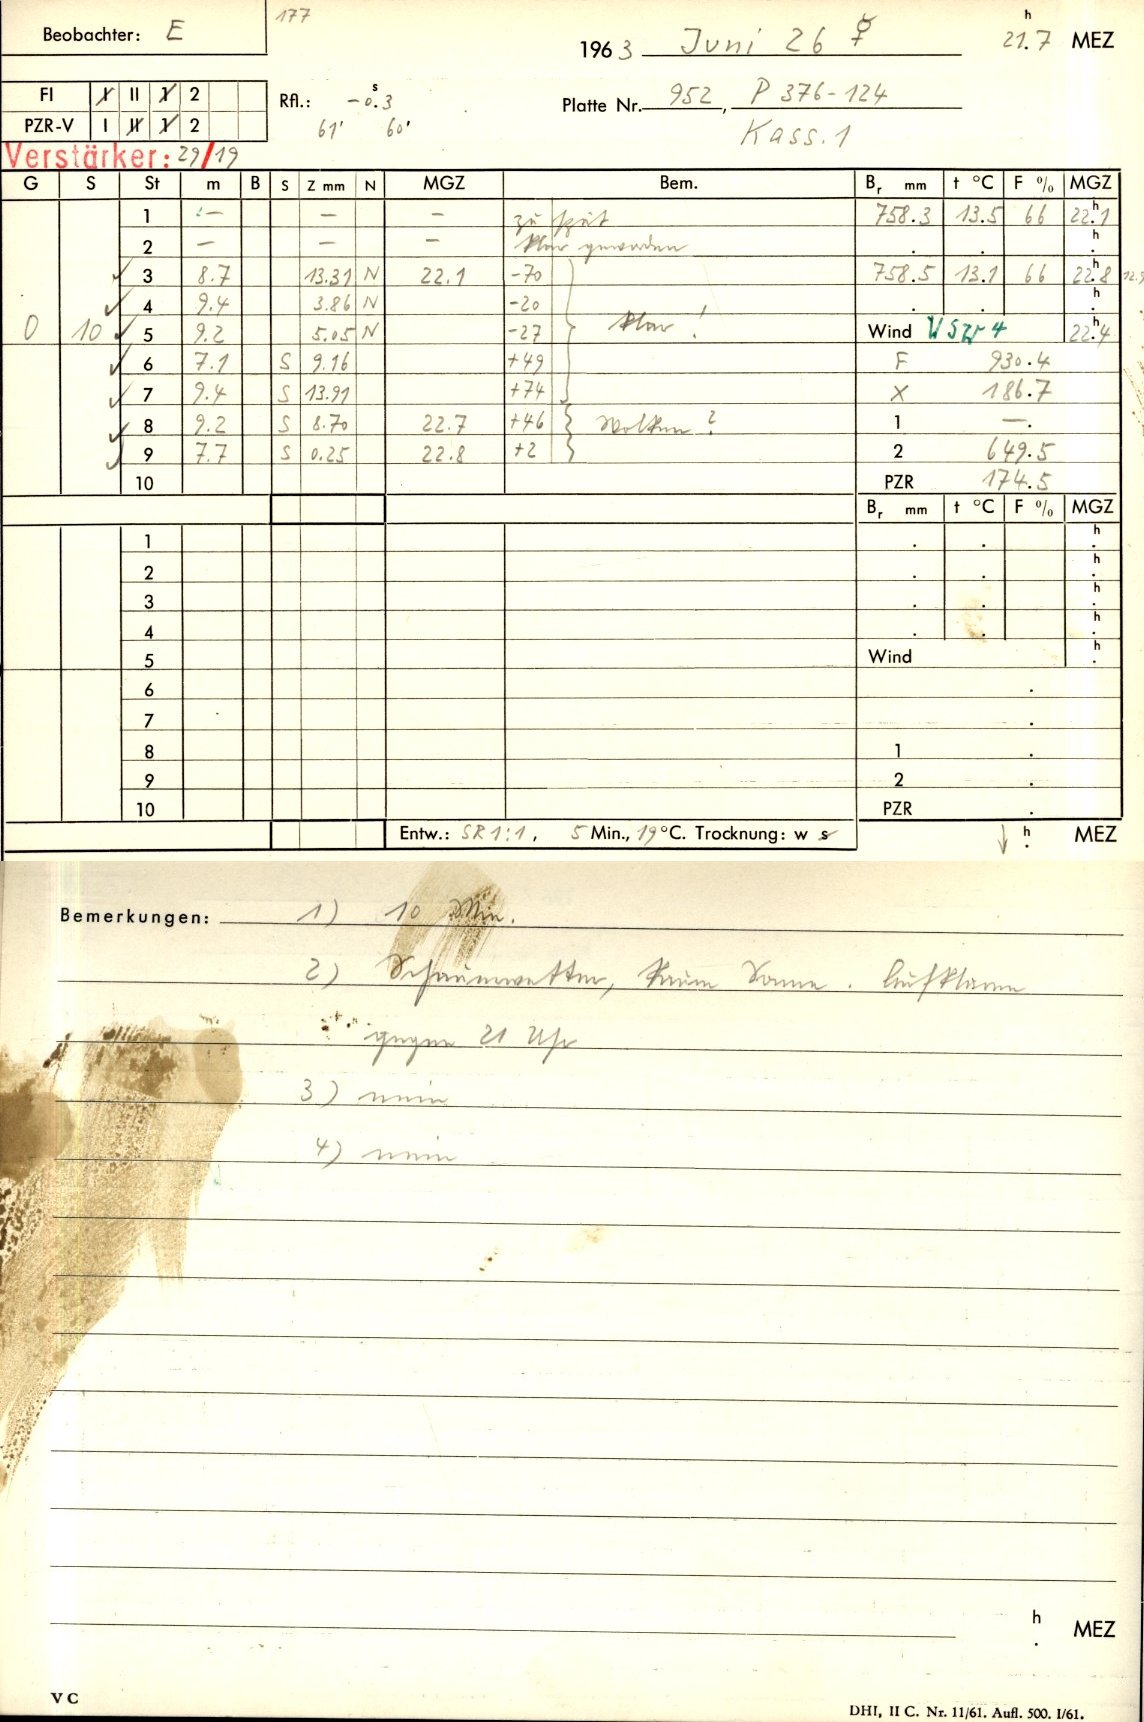 177
Beobachter: E
1963 Juni 26 ☿ 21.7 h MEZ
FI I II 1 2
PZR-V I II 1 2
Rfl.: -0.3 s
61' 60'
Platte Nr. 952, P 376-124
Kass. 1
Verstärker: 29/19
G S St m B S Z mm N MGZ Bem. Br mm t °C F % MGZ
1 — — — zu spät 758.3 13.5 66 22.1 h
2 — — — klar geworden . . h .
✓ 3 8.7 13.31 N 22.1 -70 758.5 13.1 66 22.8 h
✓ 4 9.4 3.86 N -20 . . h .
0 10 ✓ 5 9.2 5.05 N -27 klar! Wind WSW 4 22.4 h
✓ 6 7.1 S 9.16 +49 F 930.4
✓ 7 9.4 S 13.91 +74 X 186.7
✓ 8 9.2 S 8.70 22.7 +46 Wolken? 1 —.
✓ 9 7.7 S 0.25 22.8 +2 2 649.5
10 PZR 174.5
Br mm t °C F % MGZ
1 . . h .
2 . . h .
3 . . h .
4 . . h .
5 Wind h .
6 .
7 .
8 1 .
9 2 .
10 PZR .
Entw.: SR 1:1, 5 Min., 19 °C. Trocknung: w s h . MEZ
Bemerkungen: 1) 10 Min.
2) Schauerwetter, kaum Sonne. Aufklaren
gegen 21 Uhr
3) nein
4) nein
h . MEZ
V C
DHI, II C. Nr. 11/61. Aufl. 500. I/61.